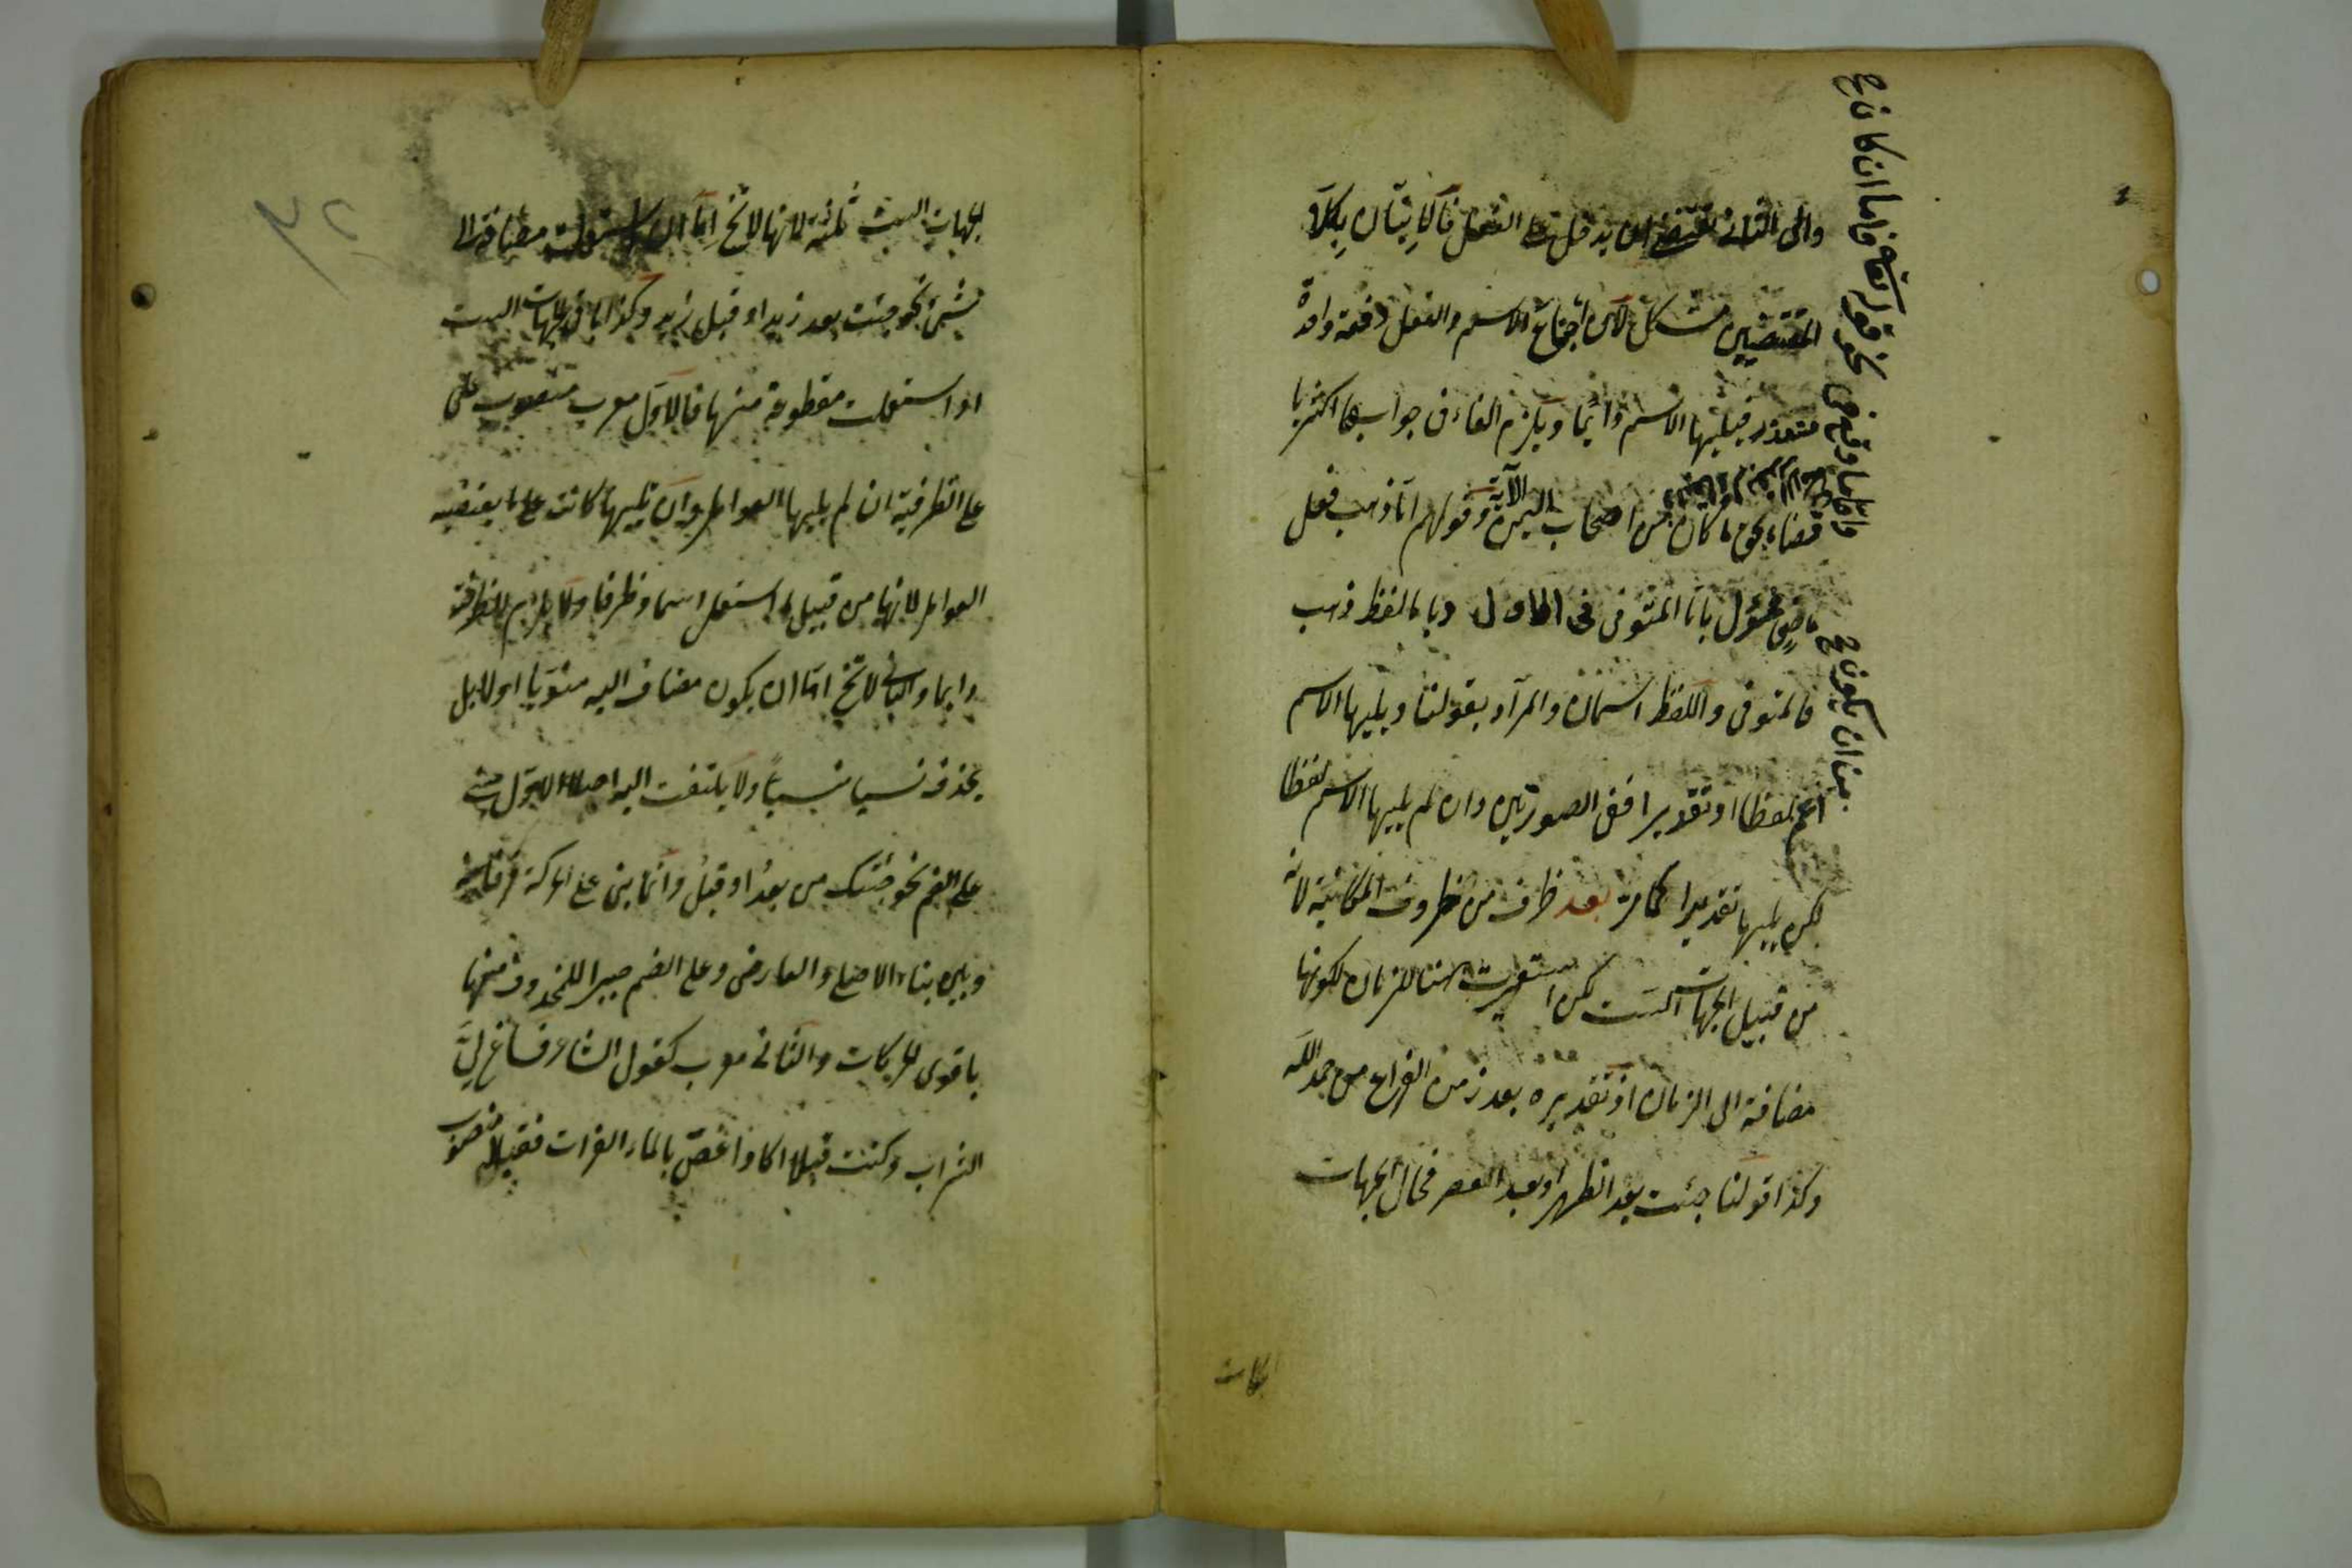 والى الثانى تقتضى ان يدخل على الفعل فالاتيان بكلا
المقتضيين مشكل لان اجتماع الاسم والفعل دفعة واحدة
متعذر فيليها الاسم دائما ويلزم الفاء فى جوابها اكثريا
قضاء بحق ما كان من اصحاب اليمين الآية وقولهم اما ذهب فعل
ماضى مؤول بانا المتوفى فى الاول وباما لفظ ذهب
فالمتوفى واللفظ اسمان والمراد بقولنا ويليها الاسم
اعم لفظا او تقديرا ففى الصورتين وان لم يليها الاسم لفظا
لكن يليها تقديرا كما مر بعد ظرف من ظروف المكانية لانه
من قبيل الجهات الست لكن استعيرت هنا للزمان لكونها
مضافة الى الزمان او تقديره بعد زمن الفراغ من حمد الله
وكذا قولنا جئت بعد الظهر او بعد العصر فحال الجهات
نحو قوله تعالى فاما ان كان
منا ان يكون
لجهات الست ثلثة لانها لا تخ اما ان استعملت مضافة الى
شىء نحو جئت بعد زيد او قبل زيد وكذا باقى الجهات الست
او استعملت مقطوعة منها فالاول معرب منصوب على
على الظرفية ان لم يليها العوامل وان تليها كانت على ما يقتضيه
العوامل لانها من قبيل ما استعمل اسما وظرفا ولا يلزم الظرفية
دايما والثانى لا تخ اما ان يكون مضاف اليه منويا او لا بل
يحذف نسيا منسيا ولا يلتفت اليه اصلا الاول مبنى
على الضم نحو جئتك من بعد او قبل وانما بنى على الحركة فرقا بينه
وبين بناء الاصلى والعارضى وعلى الضم جبرا للمحذوف منها
باقوى الحركات والثانى معرب كقول الشاعر فساغ لى
الشراب وكنت قبلا اكاد اغص بالماء الفرات فقبلا منصوب